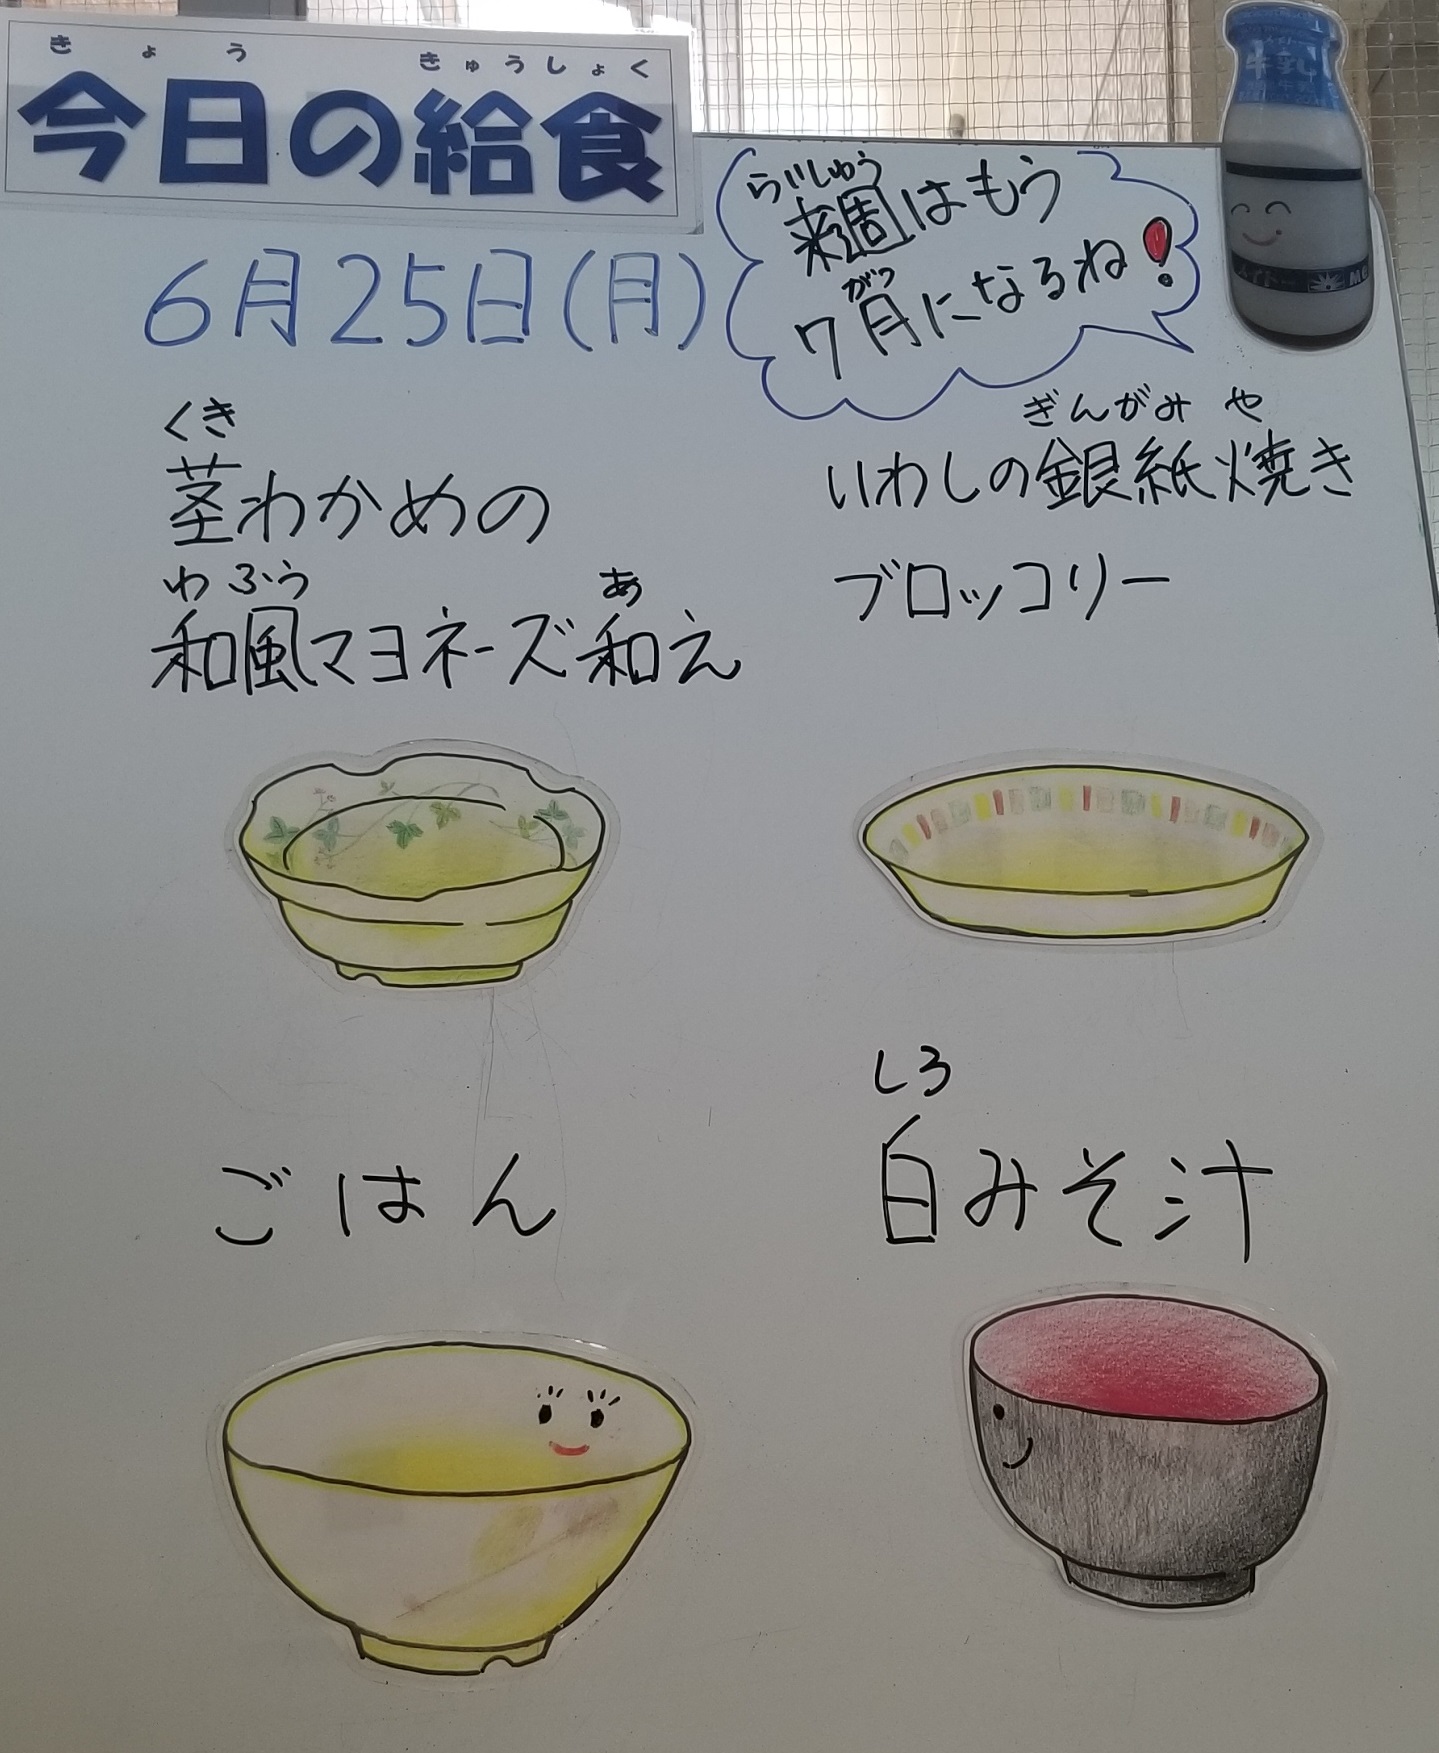 きょう きゅうしょく
今日の給食
6月25日(月)
らいしゅう
来週はもう
がつ
7月になるね!
牛乳
くき
茎わかめの
わふう あ
和風マヨネーズ和え
ぎんがみ や
いわしの銀紙焼き
ブロッコリー
ごはん
しろ
白みそ汁